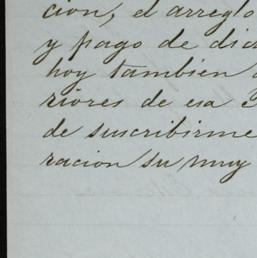 cion, el arreglo
y pago de dic
hoy tambien
riores de esa
de suscribirme
racion su muy